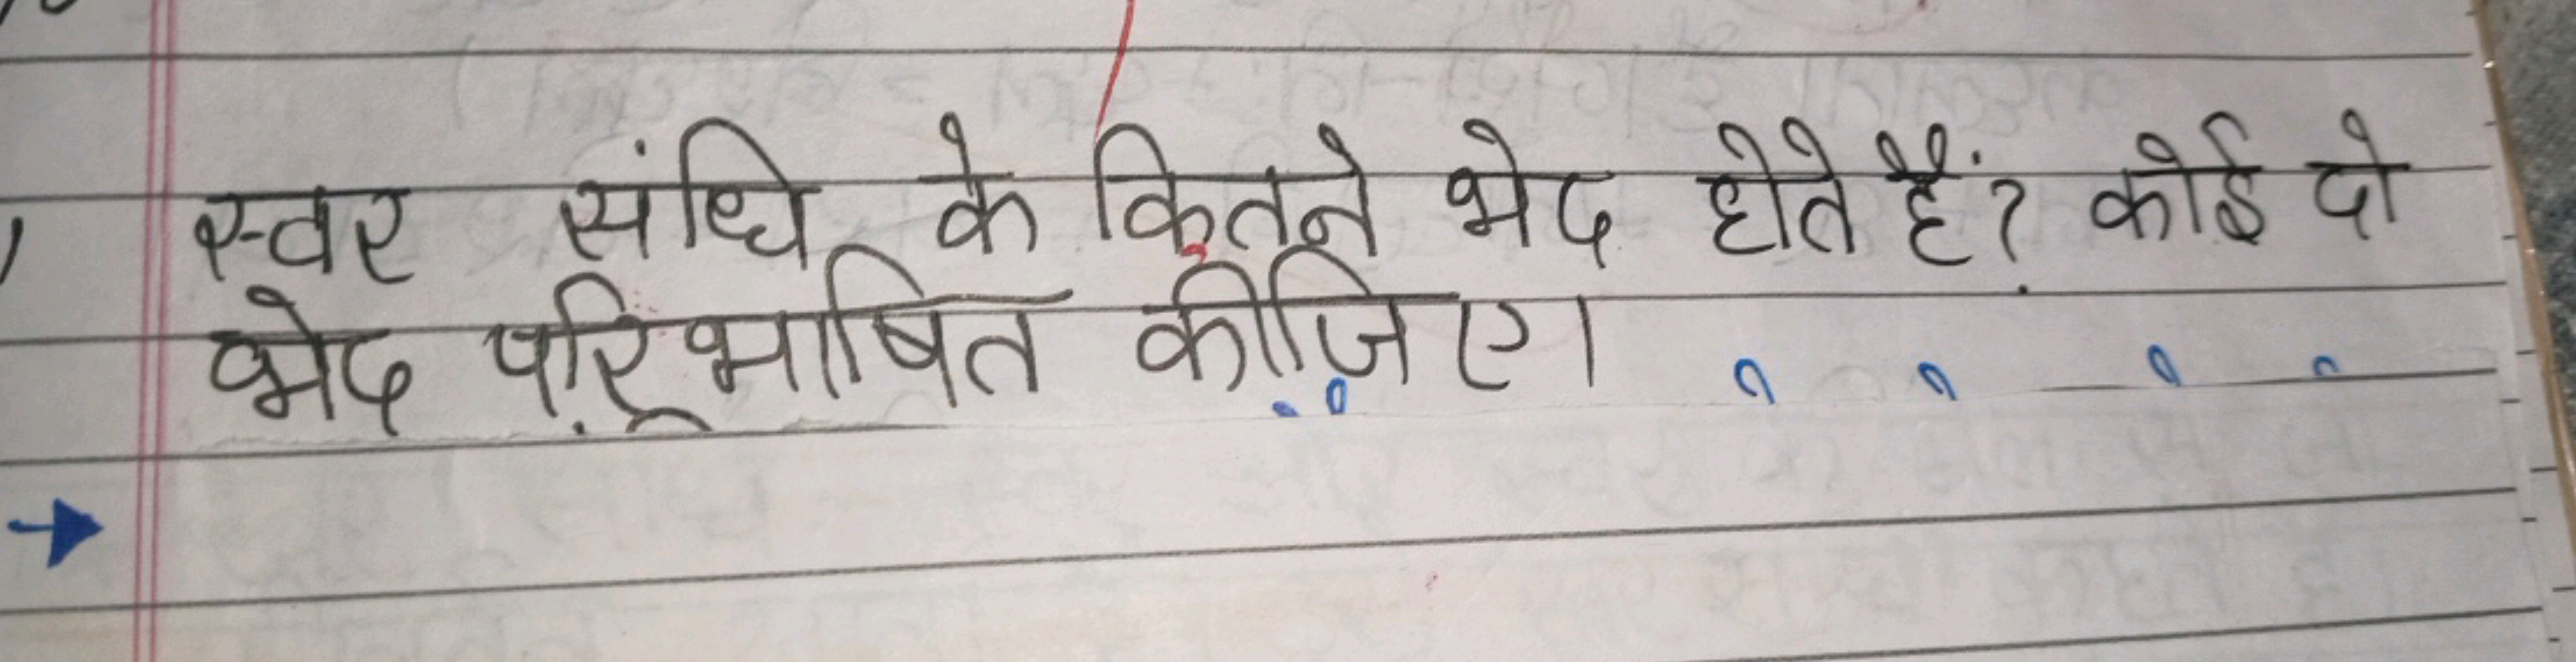 स्वर संधि के कितने भेद होते हैं? कोई दो
भेद परिभाषित कीजिए।